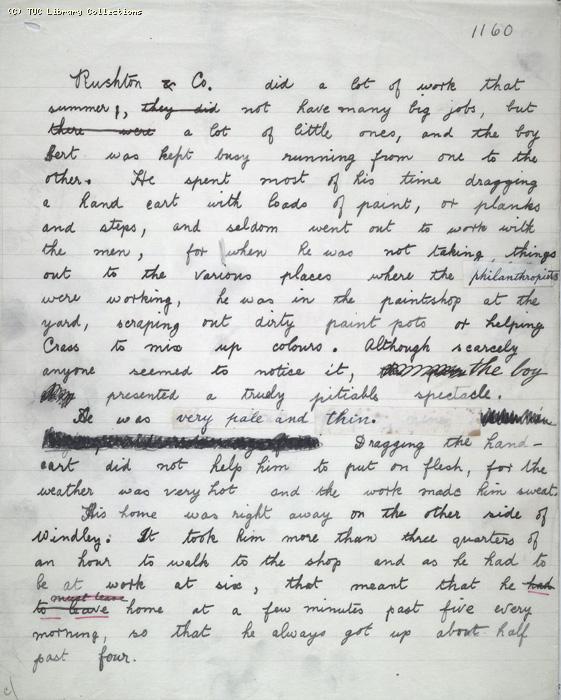 (C) TUC Library Collections
1160
Rushton & Co. did a lot of work that
summer, they did not have many big jobs, but
there were a lot of little ones, and the boy
Bert was kept busy running from one to the
other. He spent most of his time dragging
a hand cart with loads of paint, or planks
and steps, and seldom went out to work with
the men, for when he was not taking things
out to the various places where the philanthropists
were working, he was in the paintshop at the
yard, scraping out dirty paint pots or helping
Crass to mix up colours. Although scarcely
anyone seemed to notice it, the boy
presented a truly pitiable spectacle.
He was very pale and thin.
Dragging the hand-
cart did not help him to put on flesh, for the
weather was very hot and the work made him sweat.
His home was right away on the other side of
Windley. It took him more than three quarters of
an hour to walk to the shop and as he had to
be at work at six, that meant that he had
must leave
to leave home at a few minutes past five every
morning, so that he always got up about half
past four.
c/